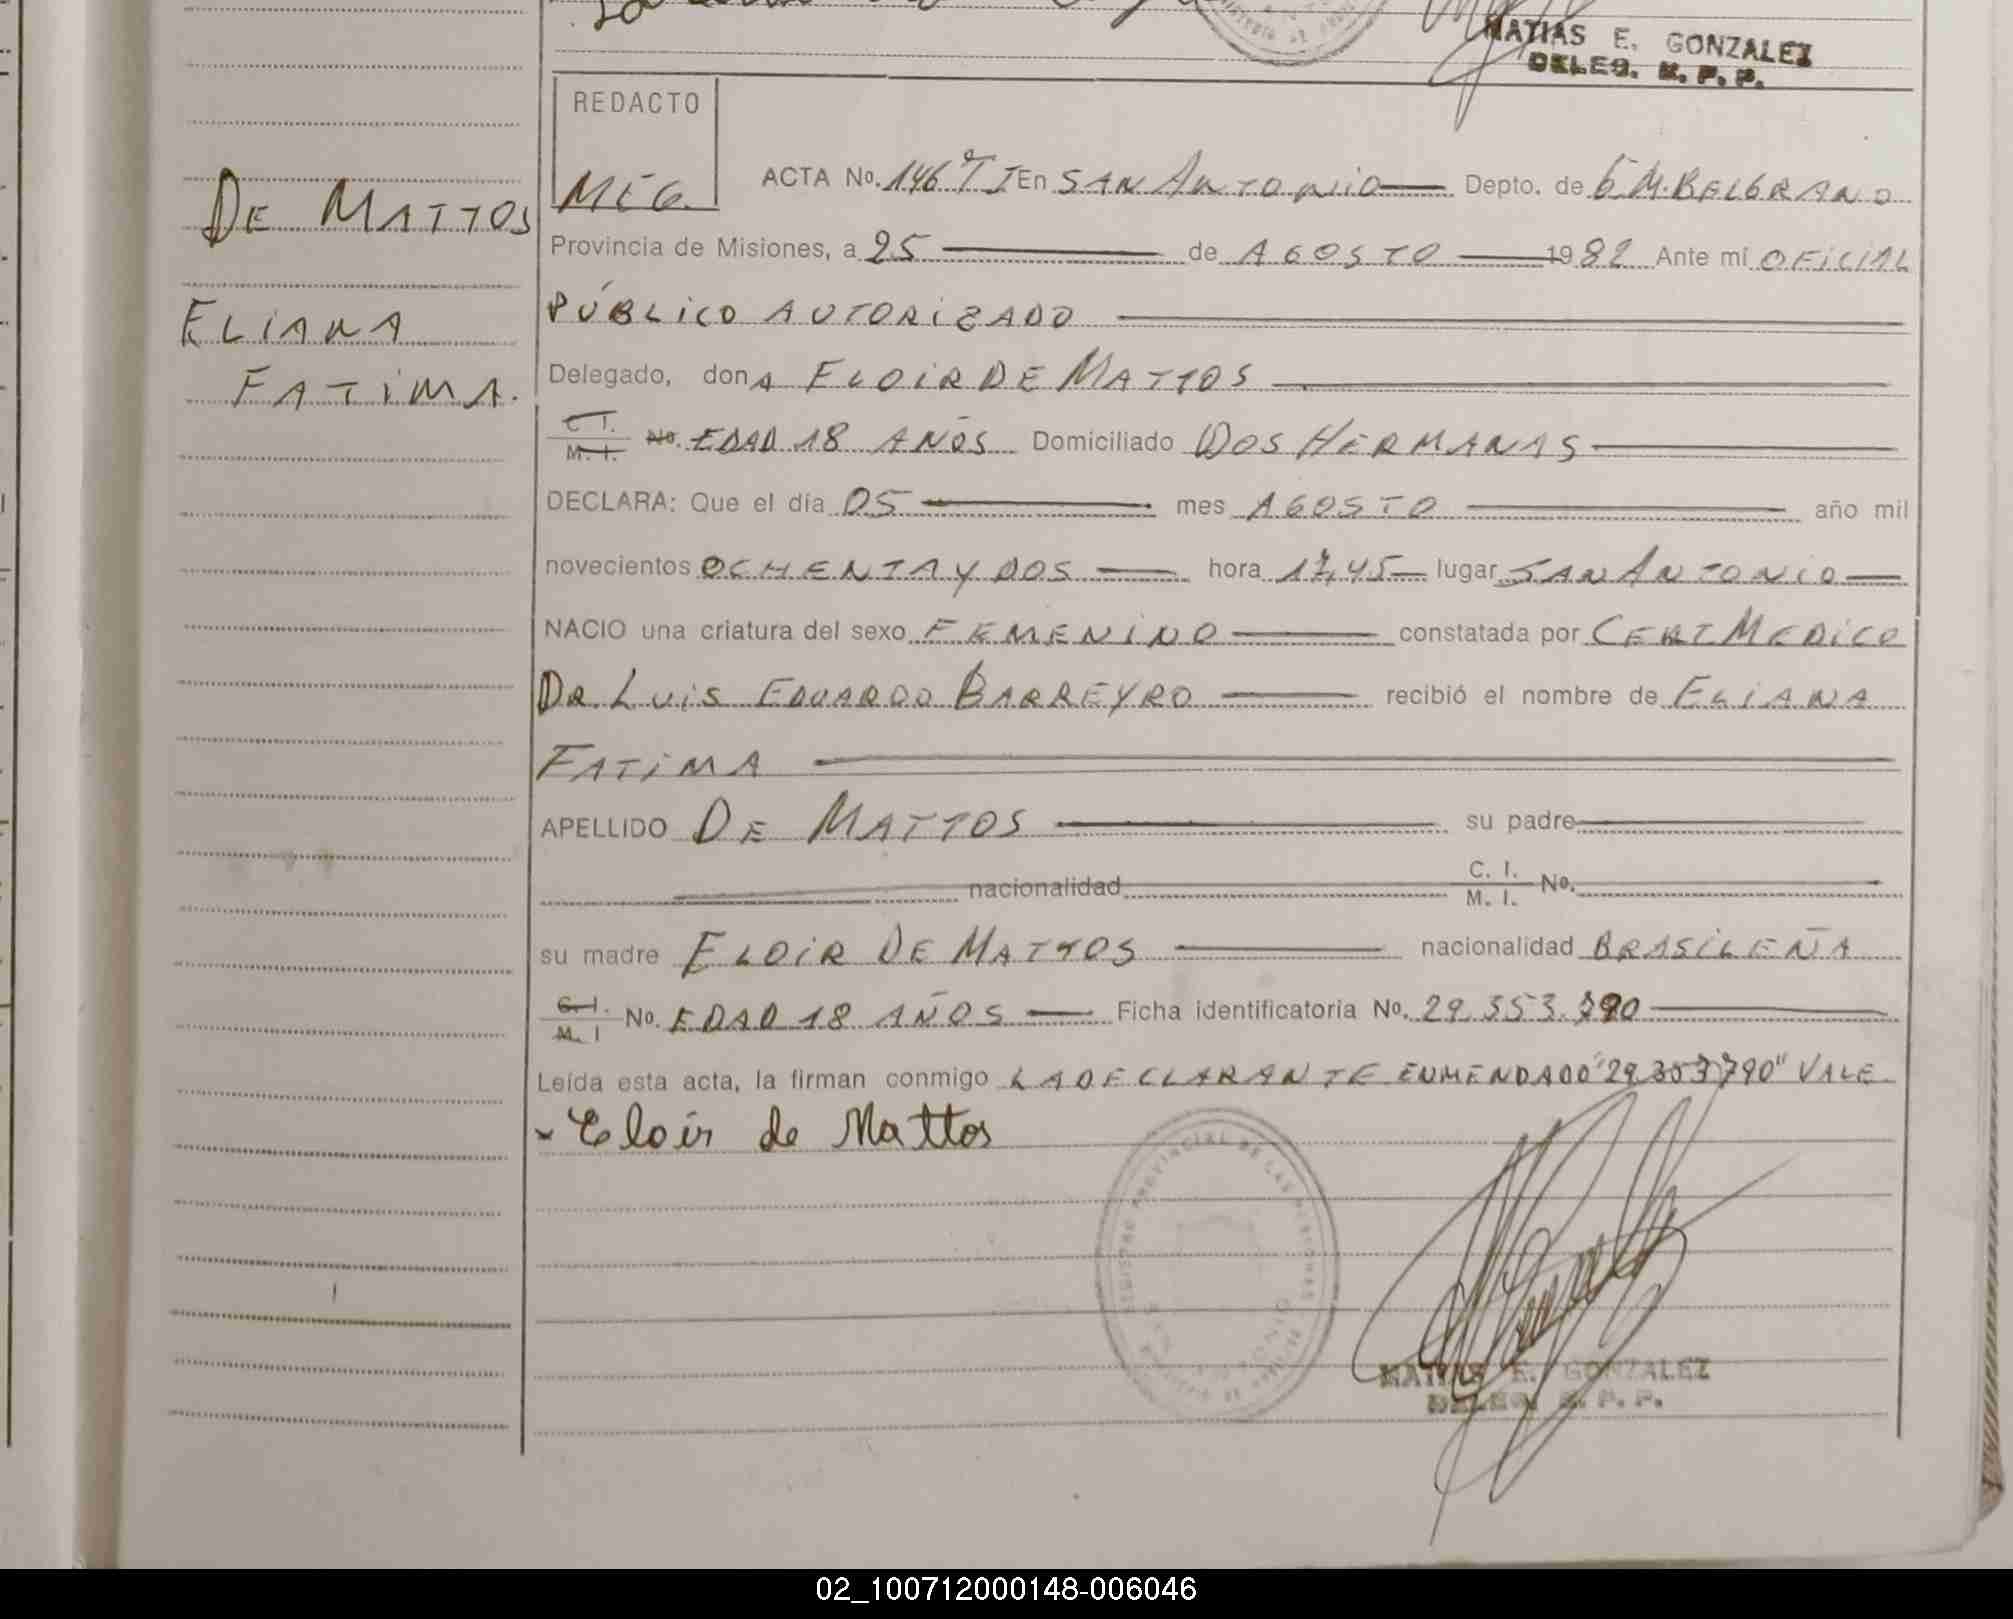 MATIAS E. GONZALEZ
DELEG. R. P. P.
REDACTO
MEG.
DE MATTOS
ELIANA
FATIMA.
ACTA No. 146 TI En SAN ANTONIO Depto. de G.M. BELGRANO
Provincia de Misiones, a 25 de AGOSTO 1982 Ante mi OFICIAL
PÚBLICO AUTORIZADO
Delegado, donA ELOIR DE MATTOS
C.I. M.I. No. EDAD 18 AÑOS Domiciliado DOS HERMANAS
DECLARA: Que el día 05 mes AGOSTO año mil
novecientos OCHENTA Y DOS hora 17,45 lugar SAN ANTONIO
NACIO una criatura del sexo FEMENINO constatada por CERT MEDICO
DR. LUIS EDUARDO BARREYRO recibió el nombre de ELIANA
FATIMA
APELLIDO DE MATTOS su padre
nacionalidad C. I. M. I. No.
su madre ELOIR DE MATTOS nacionalidad BRASILEÑA
C.I. M.I No. EDAD 18 AÑOS Ficha identificatoria No. 29.353.790
Leída esta acta, la firman conmigo LA DECLARANTE ENMENDADO "29.353.790" VALE
Eloir de Mattos
REGISTRO PROVINCIAL DE LAS PERSONAS
MATIAS E. GONZALEZ
DELEG. R. P. P.
02_100712000148-006046